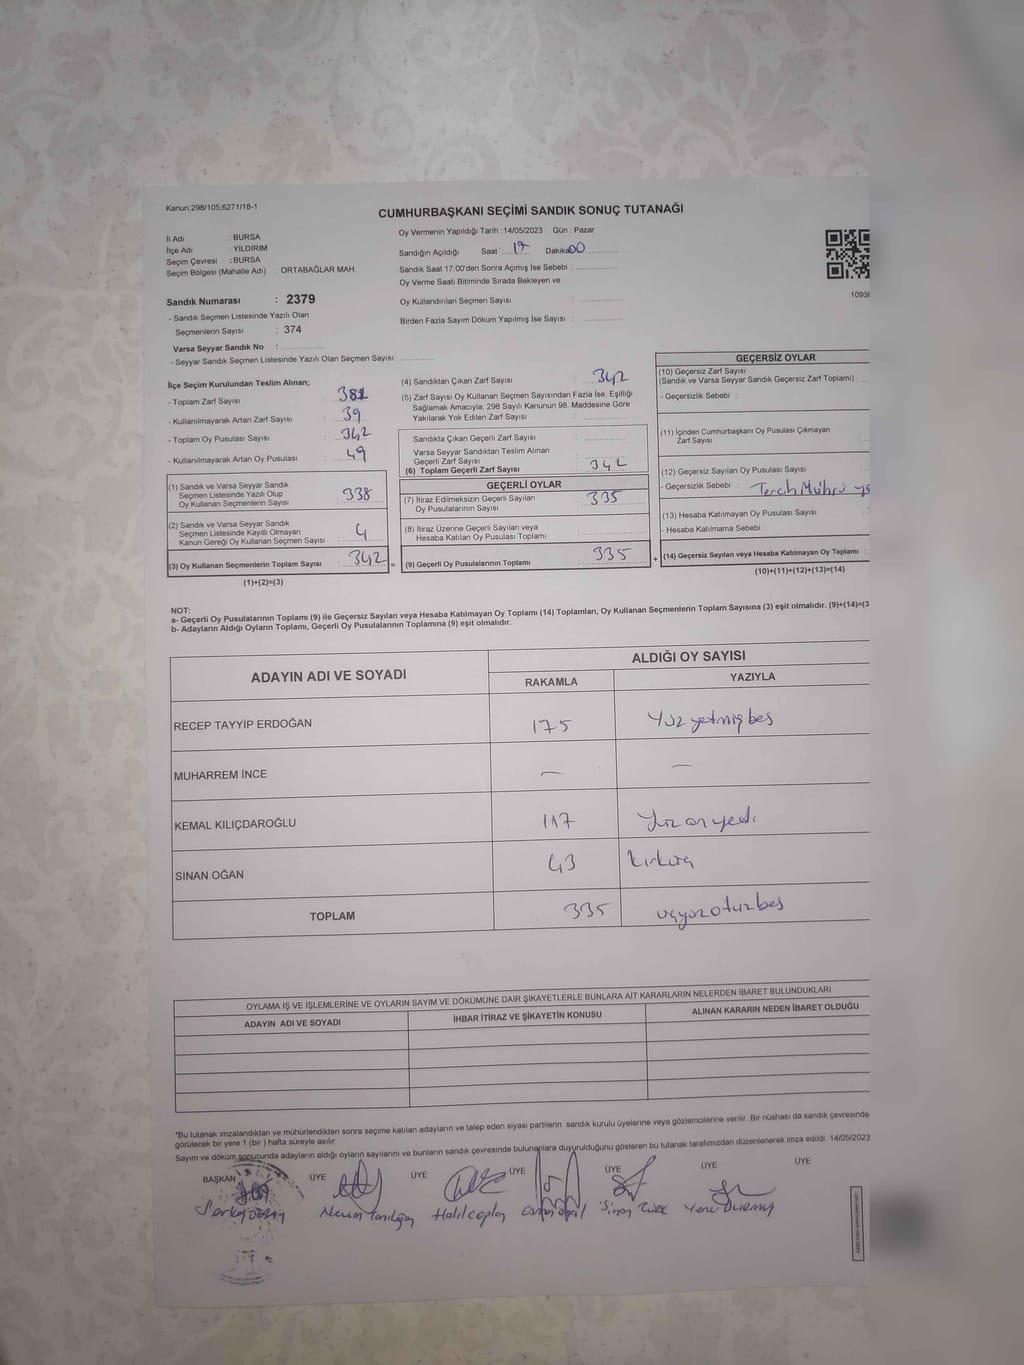 Kanun;298/105;6271/18-1
CUMHURBAŞKANI SEÇİMİ SANDIK SONUÇ TUTANAĞI
İl Adı : BURSA
İlçe Adı : YILDIRIM
Seçim Çevresi : BURSA
Seçim Bölgesi (Mahalle Adı) : ORTABAĞLAR MAH.
Sandık Numarası : 2379
- Sandık Seçmen Listesinde Yazılı Olan
Seçmenlerin Sayısı : 374
Varsa Seyyar Sandık No :
- Seyyar Sandık Seçmen Listesinde Yazılı Olan Seçmen Sayısı:
Oy Vermenin Yapıldığı Tarih : 14/05/2023 Gün : Pazar
Sandığın Açıldığı Saat : 17 Dakika 00
Sandık Saat 17:00'den Sonra Açılmış İse Sebebi :
Oy Verme Saati Bitiminde Sırada Bekleyen ve
Oy Kullandırılan Seçmen Sayısı :
Birden Fazla Sayım Döküm Yapılmış İse Sayısı :
1093
İlçe Seçim Kurulundan Teslim Alınan;
- Toplam Zarf Sayısı : 381
- Kullanılmayarak Artan Zarf Sayısı : 39
- Toplam Oy Pusulası Sayısı : 342
- Kullanılmayarak Artan Oy Pusulası : 49
(1) Sandık ve Varsa Seyyar Sandık
Seçmen Listesinde Yazılı Olup
Oy Kullanan Seçmenlerin Sayısı : 338
(2) Sandık ve Varsa Seyyar Sandık
Seçmen Listesinde Kayıtlı Olmayan
Kanun Gereği Oy Kullanan Seçmen Sayısı : 4
(3) Oy Kullanan Seçmenlerin Toplam Sayısı : 342
(1)+(2)=(3)
=
(4) Sandıktan Çıkan Zarf Sayısı : 342
(5) Zarf Sayısı Oy Kullanan Seçmen Sayısından Fazla İse, Eşitliği
Sağlamak Amacıyla; 298 Sayılı Kanunun 98. Maddesine Göre
Yakılarak Yok Edilen Zarf Sayısı :
Sandıkta Çıkan Geçerli Zarf Sayısı :
Varsa Seyyar Sandıktan Teslim Alınan
Geçerli Zarf Sayısı :
(6) Toplam Geçerli Zarf Sayısı : 342
GEÇERLİ OYLAR
(7) İtiraz Edilmeksizin Geçerli Sayılan
Oy Pusulalarının Sayısı : 335
(8) İtiraz Üzerine Geçerli Sayılan veya
Hesaba Katılan Oy Pusulası Toplamı :
(9) Geçerli Oy Pusulalarının Toplamı : 335
+
GEÇERSİZ OYLAR
(10) Geçersiz Zarf Sayısı
(Sandık ve Varsa Seyyar Sandık Geçersiz Zarf Toplamı) :
- Geçersizlik Sebebi :
(11) İçinden Cumhurbaşkanı Oy Pusulası Çıkmayan
Zarf Sayısı :
(12) Geçersiz Sayılan Oy Pusulası Sayısı :
- Geçersizlik Sebebi : Tercih Mührü
(13) Hesaba Katılmayan Oy Pusulası Sayısı :
- Hesaba Katılmama Sebebi :
(14) Geçersiz Sayılan veya Hesaba Katılmayan Oy Toplamı :
(10)+(11)+(12)+(13)=(14)
NOT:
a- Geçerli Oy Pusulalarının Toplamı (9) ile Geçersiz Sayılan veya Hesaba Katılmayan Oy Toplamı (14) Toplamları, Oy Kullanan Seçmenlerin Toplam Sayısına (3) eşit olmalıdır. (9)+(14)=(3
b- Adayların Aldığı Oyların Toplamı, Geçerli Oy Pusulalarının Toplamına (9) eşit olmalıdır.
ADAYIN ADI VE SOYADI
ALDIĞI OY SAYISI
RAKAMLA YAZIYLA
RECEP TAYYİP ERDOĞAN 175 Yüz yetmiş beş
MUHARREM İNCE — —
KEMAL KILIÇDAROĞLU 117 Yüz on yedi
SİNAN OĞAN 43 kırküç
TOPLAM 335 üçyüzotuzbeş
OYLAMA İŞ VE İŞLEMLERİNE VE OYLARIN SAYIM VE DÖKÜMÜNE DAİR ŞİKAYETLERLE BUNLARA AİT KARARLARIN NELERDEN İBARET BULUNDUKLARI
ADAYIN ADI VE SOYADI İHBAR İTİRAZ VE ŞİKAYETİN KONUSU ALINAN KARARIN NEDEN İBARET OLDUĞU
*Bu tutanak imzalandıktan ve mühürlendikten sonra seçime katılan adayların ve talep eden siyasi partilerin sandık kurulu üyelerine veya gözlemcilerine verilir. Bir nüshası da sandık çevresinde
görülecek bir yere 1 (bir) hafta süreyle asılır.
Sayım ve döküm sonucunda adayların aldığı oyların sayılarını ve bunların sandık çevresinde bulunanlara duyurulduğunu gösteren bu tutanak tarafımızdan düzenlenerek imza edildi. 14/05/2023
BAŞKAN ÜYE ÜYE ÜYE ÜYE ÜYE ÜYE